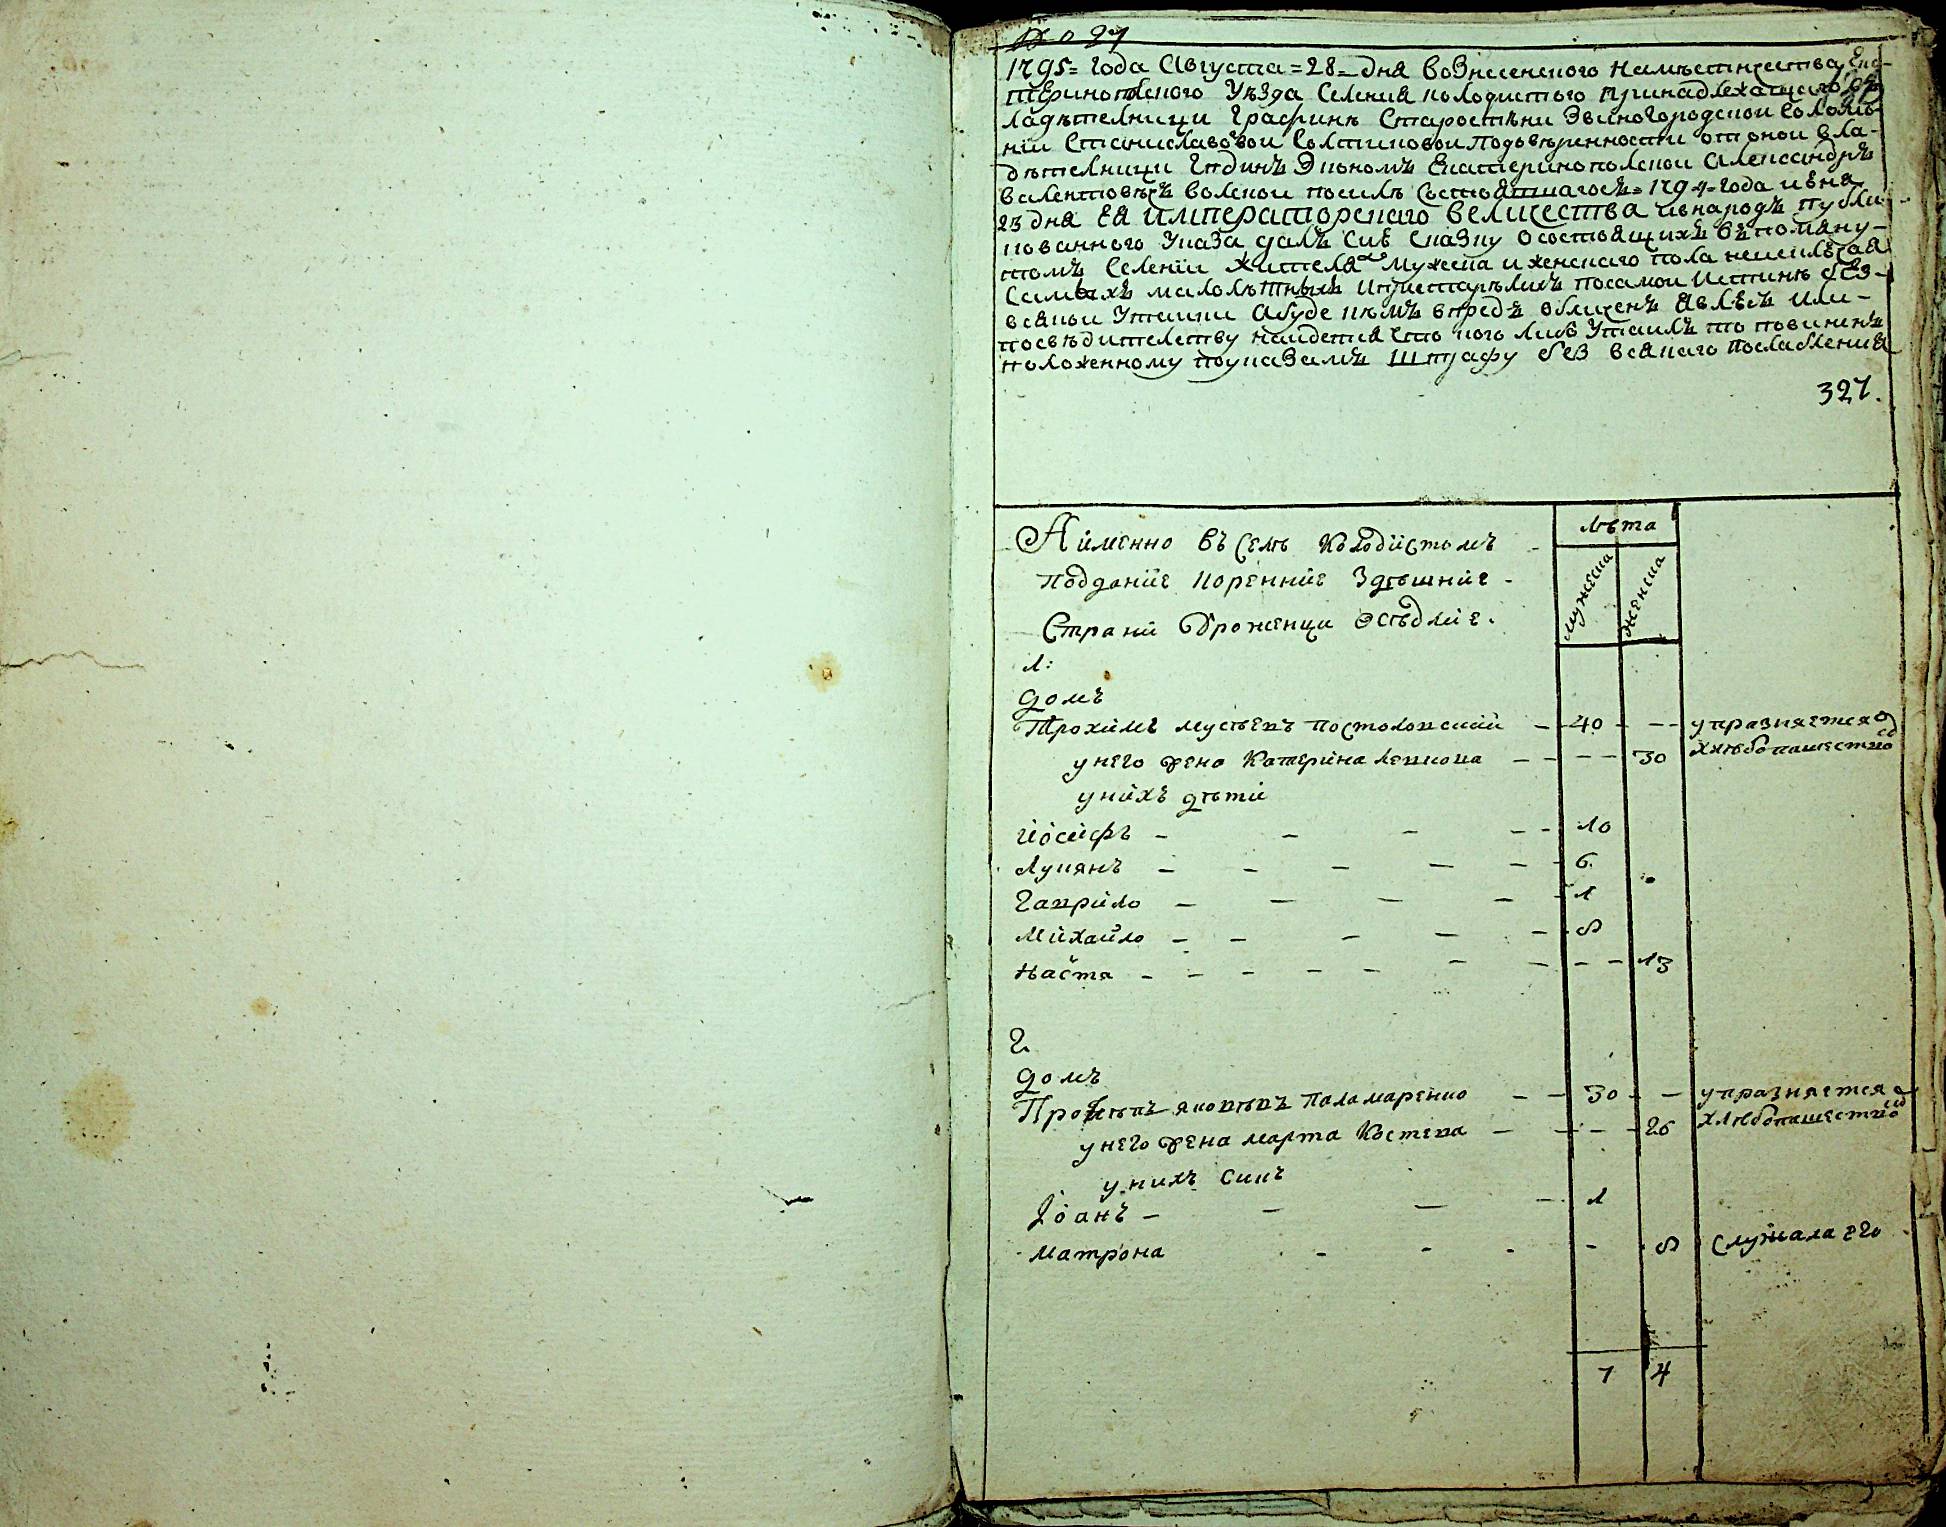 № 27
1795= года Августа =28= дня вознесенского намѣстничества Ека-
теринопольского уѣзда селения колодистого принадлежащего
владѣтелници Графинѣ Старостѣни Звиногородской Соломѣ-
нїи Станиславовой Солтиковой по довѣренности от оной вла-
дѣтелници Екатеринополской Александръ
в силѣ состоявшагося =1794= года июня
23 дня ЕЯ ИМПЕРАТОРСКАГО ВЕЛИЧЕСТВА и в народъ публи-
кованного указа далъ сию сказку о состоящихъ въ помяну-
томъ селении жителях мужеска и женскаго пола неисключая
самыхъ малолѣтныхъ и престарѣлихъ по самой истинѣ без-
всякой утайки а буде кѣмъ впредь обличенъ явлюсь или-
по свѣдителству найдется что кого либо утаилъ то повиненъ
положенному по указамъ штрафу без всякаго послабления
327.
А именно въ селѣ Колодистомъ
поддание коренние здѣшние
страни уроженци осѣдлие.
лѣта
мужеска
женска
1:
домъ
Трохимъ мусѣевъ постоловский 40 упразняется
у него жена Катерина Левкова 30 хлѣбопашествю
у нихъ дѣти
Иосифъ 10
Лукянъ 6.
Гаврило 1
Михайло 8
Настя 13
2.
домъ
Прокѣпъ яковѣвъ Паламаренко 30 упразняется
у него жена марта Костева 26 хлѣбопашествю
у нихъ синъ
Іоанъ 1
матрона 8 служала его
7 4